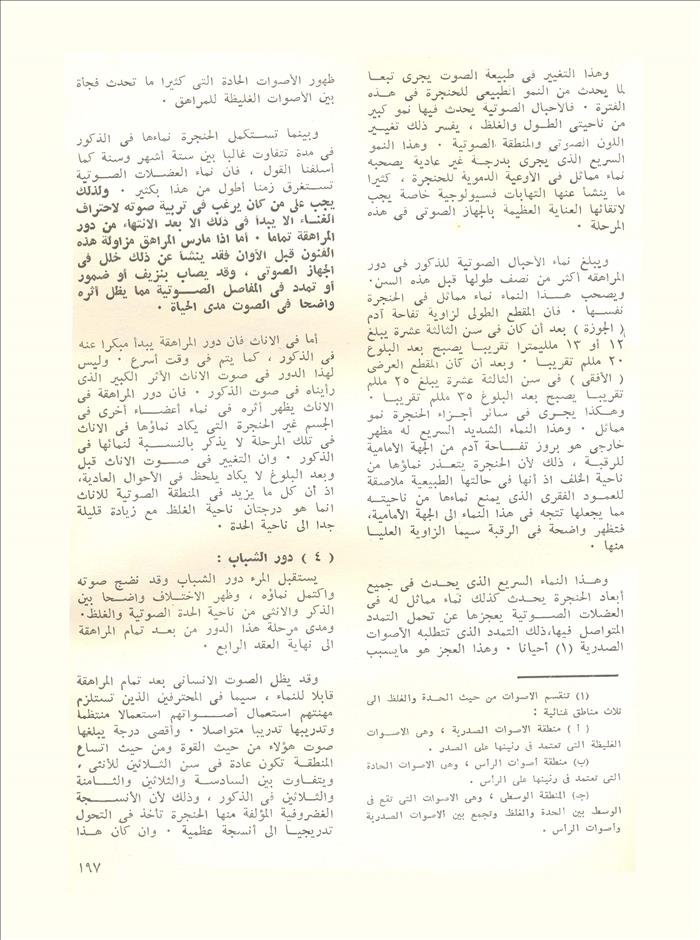 وهذا التغيير في طبيعة الصوت يجرى تبعا
لما يحدث من النمو الطبيعي للحنجرة في هذه
الفترة . فالأحبال الصوتية يحدث فيها نمو كبير
من ناحيتى الطول والغلظ ، يفسر ذلك تغيير
اللون الصوتى والمنطقة الصوتية . وهذا النمو
السريع الذى يجرى بدرجة غير عادية يصحبه
نماء مماثل فى الأوعية الدموية للحنجرة ، كثيرا
ما ينشأ عنها التهابات فسيولوجية خاصة يجب
لاتقائها العناية العظيمة بالجهاز الصوتى فى هذه
المرحلة .
ويبلغ نماء الأحبال الصوتية للذكور فى دور
المراهقه أكثر من نصف طولها قبل هذه السن .
ويصحب هذا النماء نماء مماثل فى الحنجرة
نفسها . فان المقطع الطولى لزاوية تفاحة آدم
( الجوزة ) بعد أن كان فى سن الثالثة عشرة يبلغ
١٢ أو ١٣ ملليمترا تقريبا يصبح بعد البلوغ
٢٠ مللم تقريبا . وبعد أن كان المقطع العرضى
( الأفقى ) فى سن الثالثة عشرة يبلغ ٢٥ مللم
تقريبا يصبح بعد البلوغ ٣٥ مللم تقريبا .
وهكذا يجرى فى سائر أجزاء الحنجرة نمو
مماثل . وهذا النماء الشديد السريع له مظهر
خارجى هو بروز تفاحة آدم من الجهة الأمامية
للرقبة ، ذلك لأن الحنجرة يتعذر نماؤها من
ناحية الخلف اذ أنها فى حالتها الطبيعية ملاصقة
للعمود الفقرى الذى يمنع نماءها من ناحيته
مما يجعلها تتجه فى هذا النماء الى الجهة الأمامية،
فتظهر واضحة فى الرقبة سيما الزاوية العليا
منها .
وهذا النماء السريع الذى يحدث فى جميع
أبعاد الحنجرة يحدث كذلك نماء مماثل له فى
العضلات الصوتية يعجزها عن تحمل التمدد
المتواصل فيها،ذلك التمدد الذى تتطلبه الأصوات
الصدرية (١) أحيانا . وهذا العجز هو مايسبب
(١) تنقسم الأصوات من حيث الحدة والغلظ الى
ثلاث مناطق غنائية :
( أ ) منطقة الأصوات الصدرية ، وهى الاصوات
الغليظة التى تعتمد فى رنينها على الصدر .
(ب) منطقة أصوات الرأس ، وهى الاصوات الحادة
التى تعتمد فى رنينها على الرأس .
(جـ) المنطقة الوسطى ، وهى الاصوات التى تقع فى
الوسط بين الحدة والغلظ وتجمع بين الأصوات الصدرية
وأصوات الرأس .
ظهور الأصوات الحادة التى كثيرا ما تحدث فجأة
بين الأصوات الغليظة للمراهق .
وبينما تستكمل الحنجرة نماءها فى الذكور
فى مدة تتفاوت غالبا بين ستة أشهر وسنة كما
أسلفنا القول ، فان نماء العضلات الصوتية
تستغرق زمنا أطول من هذا بكثير . ولذلك
يجب على من كان يرغب فى تربية صوته لاحتراف
الغناء الا يبدأ فى ذلك الا بعد الانتهاء من دور
المراهقة تماما . أما اذا مارس المراهق مزاولة هذه
الفنون قبل الأوان فقد ينشأ عن ذلك خلل فى
الجهاز الصوتى ، وقد يصاب بنزيف أو ضمور
أو تمدد فى المفاصل الصوتية مما يظل أثره
واضحا فى الصوت مدى الحياة .
أما فى الاناث فان دور المراهقة يبدأ مبكرا عنه
فى الذكور ، كما يتم فى وقت أسرع . وليس
لهذا الدور فى صوت الاناث الأثر الكبير الذى
رأيناه فى صوت الذكور . فان دور المراهقة فى
الاناث يظهر أثره فى نماء أعضاء أخرى فى
الجسم غير الحنجرة التى يكاد نماؤها فى الاناث
فى تلك المرحلة لا يذكر بالنسبة لنمائها فى
الذكور . وان التغيير فى صوت الاناث قبل
وبعد البلوغ لا يكاد يلحظ فى الأحوال العادية،
اذ أن كل ما يزيد فى المنطقة الصوتية للاناث
انما هو درجتان ناحية الغلظ مع زيادة قليلة
جدا الى ناحية الحدة .
( ٤ ) دور الشباب :
يستقبل المرء دور الشباب وقد نضج صوته
واكتمل نماؤه ، وظهر الاختلاف واضحا بين
الذكر والانثى من ناحية الحدة الصوتية والغلظ.
ومدى مرحلة هذا الدور من بعد تمام المراهقة
الى نهاية العقد الرابع .
وقد يظل الصوت الانسانى بعد تمام المراهقة
قابلا للنماء ، سيما فى المحترفين الذين تستلزم
مهنتهم استعمال أصواتهم استعمالا منتظما
وتدريبها تدريبا متواصلا . وأقصى درجة يبلغها
صوت هؤلاء من حيث القوة ومن حيث اتساع
المنطقة تكون عادة فى سن الثلاثين للأنثى ،
ويتفاوت بين السادسة والثلاثين والثامنة
والثلاثين فى الذكور ، وذلك لأن الأنسجة
الغضروفية المؤلفة منها الحنجرة تأخذ فى التحول
تدريجيا الى أنسجة عظمية . وان كان هذا
١٩٧